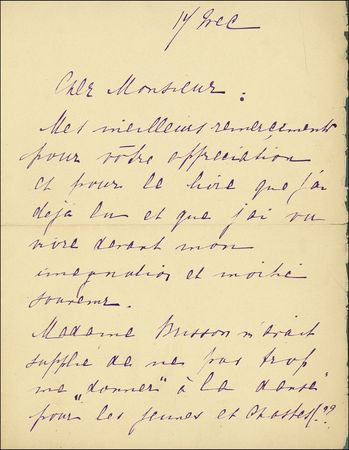 17 Dec
Cher Monsieur :
Mes meilleurs remerciements
pour vôtre appreciation
et pour le livre que j'ai
déjà lu et que j'ai vu
vivre devant mon
imagination et moitié
souvenir.
Madame Brisson m'avait
supplié de ne pas trop
me "donner" à la danse
pour les jeunes et chastes(??